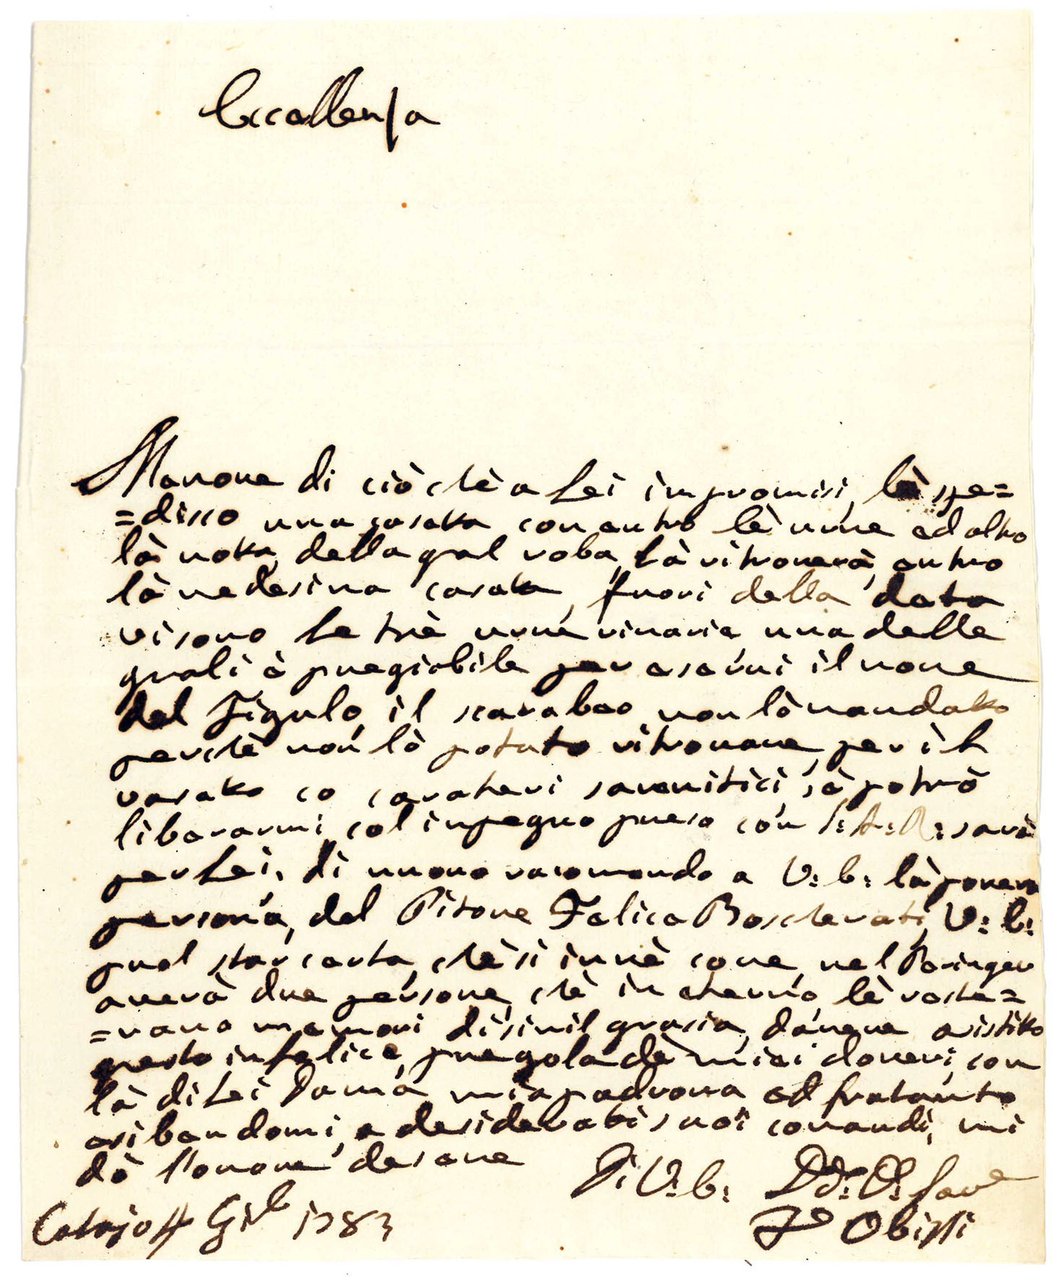 Eccellenza
Memore di ciò chè a Lei impromisi, lè spe=
=disco una caseta con entro lè urne ed altro
là nota della qual roba, là ritroverà, entro
là medesima caseta, fuori della data
vi sono Le trè urne vinarie una delle
quali è pregiabile per eservi il nome
del Figulo, il scarabeo non lò mandato
perchè non lò potuto ritrovare, per il
vasato co carateri sarenitici, sè potrò
liberarmi col inpegno preso con S: A: R: sarà
per Lei, di nuovo racomando a V: E: là povera
persona, del Pitore Felice Boscherati, V: E:
qual star certa, chè si in mè come nel Beringer
averà due persone chè in eterno lè reste=
=rano memori di simil grasia, d'avere asistito
questo infelice, pregola de miei doveri, con
là di Lei Dama mia padrona ed fratanto
esibendomi a desiderati suoi comandi, mi
dò l'onore desere
Di V: E:
Dd: O: Seve
Catajo 4 Gi 1783
To Obizzi